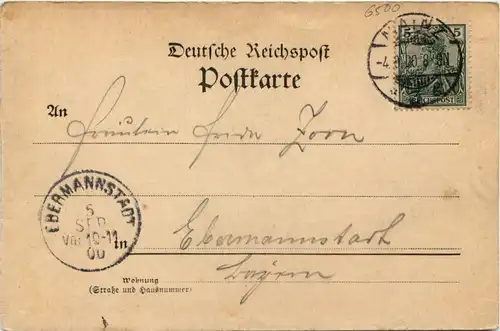 6500
MAINZ
5 5
-4. 9. 00. 8-9N
REICHSPOST
Deutsche Reichspost
Postkarte
An
Fräulein Frieda Zorn
EBERMANNSTADT
5
SEP
Vor 10-11
00
in
Ebermannstadt
Bayern
Wohnung
(Straße und Hausnummer)